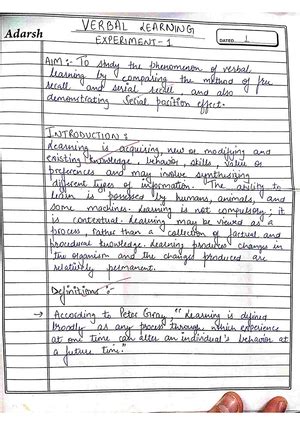 Adarsh
VERBAL LEARNING
EXPERIMENT-1
DATED 1
AIM :- To study the phenomenon of verbal
learning by comparing the method of free
recall and serial recall, and also
demonstrating Serial position effect.
INTRODUCTION :
Learning is acquiring, new or modifying and
existing knowledge, behavior, skills, value or
preferences and may involve synthesizing
different types of information. The ability to
learn is possessed by humans, animals, and
some machines. Learning is not compulsory; it
is contextual. Learning may be viewed as a
process, rather than a collection of factual and
procedural knowledge. Learning produces changes in
the organism and the changes produced are
relatively permanent.
Definitions :-
→ According to Peter Gray, "Learning is defined
broadly as any process through which experience
at one time can alter an individual's behavior at
a future time."